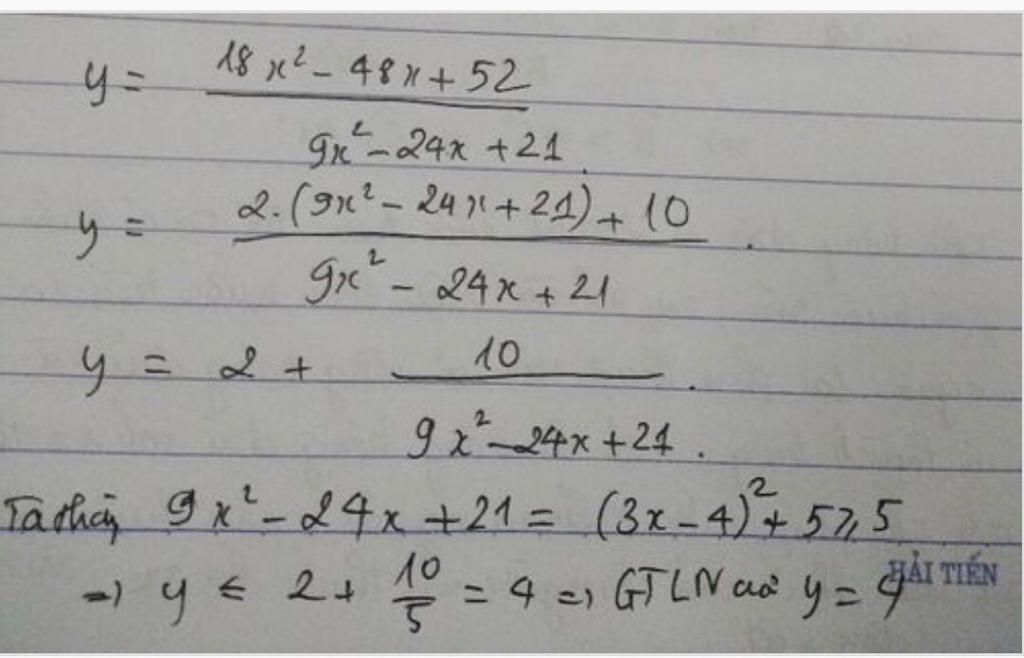 y = \frac{18x² - 48x + 52}{9x² - 24x + 21}.
y = \frac{2.(9x² - 24x + 21) + 10}{9x² - 24x + 21}.
y = 2 + \frac{10}{9x² - 24x + 21}.
Ta thấy 9x² - 24x + 21 = (3x - 4)² + 5 ⩾ 5
HẢI TIẾN
=> y ≤ 2 + \frac{10}{5} = 4 => GTLN của y = 4